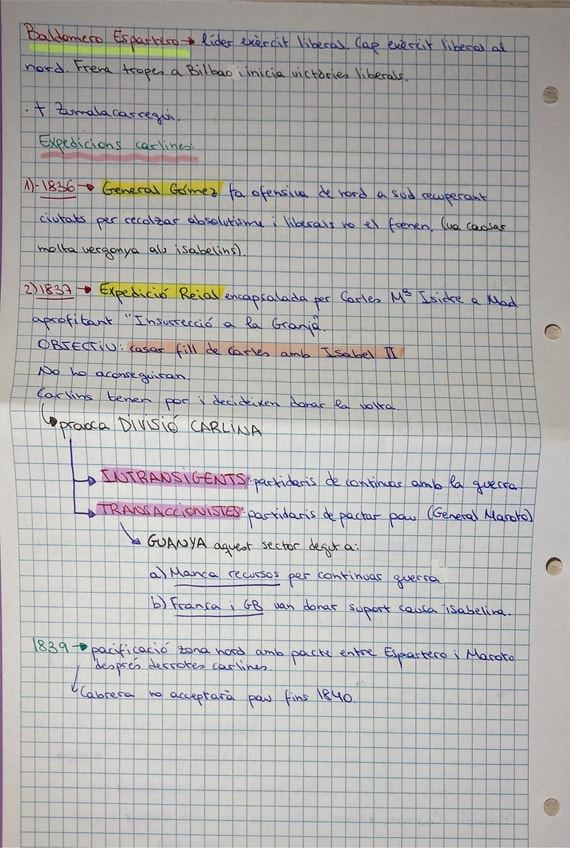 Baldomero Espartero → líder exèrcit liberal. Cap exèrcit liberal al
nord. Frena tropes a Bilbao i inicia victòries liberals.
· † Zumalacarregui.
Expedicions carlines:
1)-1836 → General Gómez fa ofensiva de nord a sud recuperant
ciutats per recolzar absolutisme i liberals no el frenen. (va causar
molta vergonya als isabelins).
2) 1837 → Expedició Reial encapçalada per Carles Mª Isidre a Mad
aprofitant "Insurrecció a la Granja".
OBJECTIU: casar fill de Carles amb Isabel II
No ho aconseguiran.
Carlins tenen por i decideixen donar la volta
↳ provoca DIVISIÓ CARLINA
→ INTRANSIGENTS: partidaris de continuar amb la guerra
→ TRANSACCIONISTES: partidaris de pactar pau (General Maroto)
↘ GUANYA aquest sector degut a:
a) Manca recursos per continuar guerra
b) França i GB van donar suport causa isabelina.
1839 → pacificació zona nord amb pacte entre Espartero i Maroto
després derrotes carlines.
↓ Cabrera no acceptarà pau fins 1840.